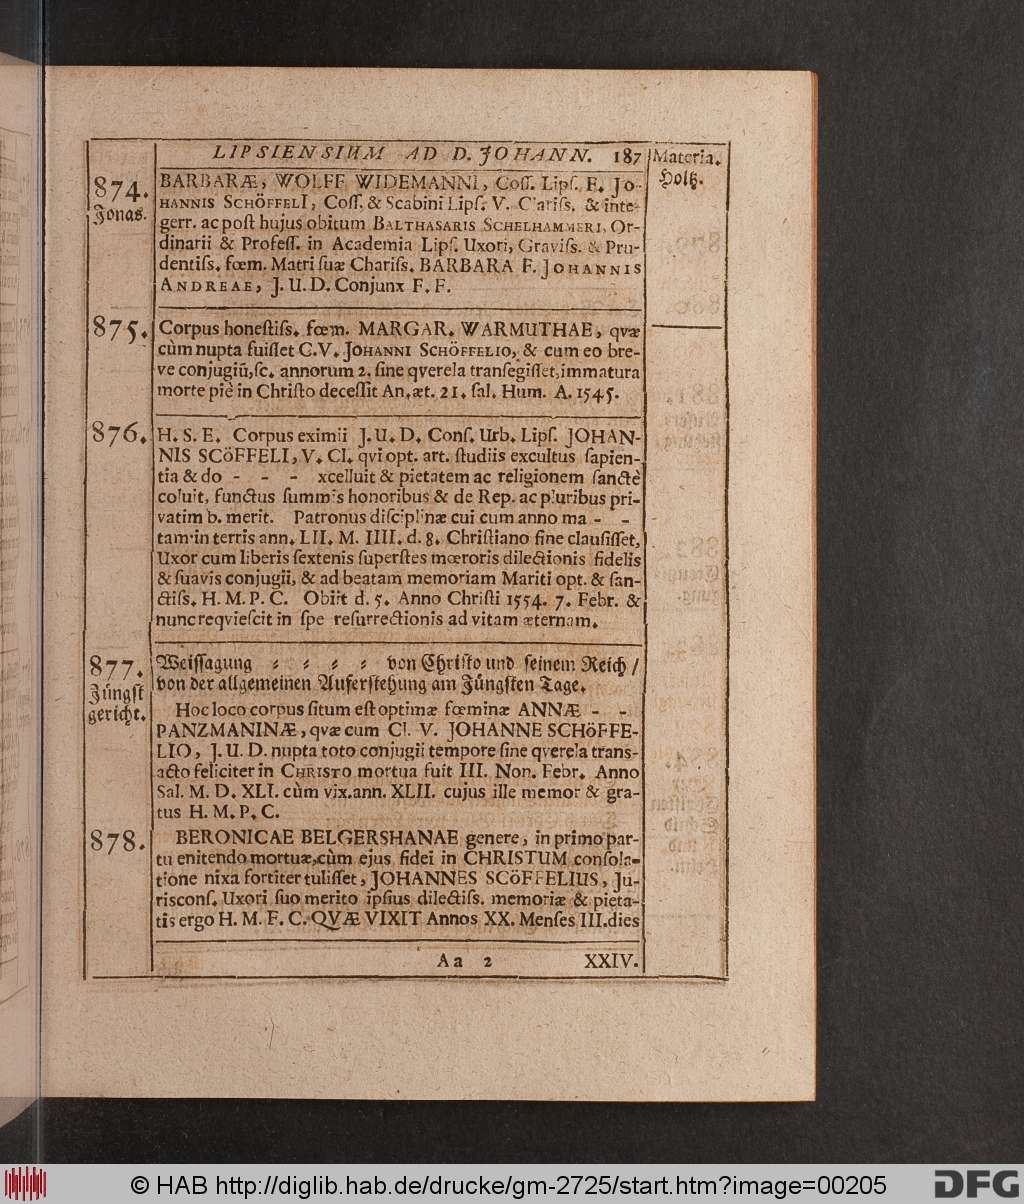 LIPSIENSIUM AD D. JOHANN. 187
Materia.
Holtz.
874.
Jonas.
BARBARÆ, WOLFF WIDEMANNI, Coſſ. Lipſ. F. JO-
HANNIS SCHÖFFELI, Coſſ. & Scabini Lipſ. V. Clariſs. & inte-
gerr. ac poſt hujus obitum BALTHASARIS SCHELHAMMERI, Or-
dinarii & Profeſſ. in Academia Lipſ. Uxori, Graviſs. & Pru-
dentiſs. fœm. Matri ſuæ Chariſs. BARBARA F. JOHANNIS
ANDREAE, J. U. D. Conjunx F. F.
875.
Corpus honeſtiſs. fœm. MARGAR. WARMUTHAE, qvæ
cùm nupta fuiſſet C.V. JOHANNI SCHÖFFELIO, & cum eo bre-
ve conjugiũ, ſc. annorum 2. ſine qverela tranſegiſſet, immatura
morte piè in Chriſto deceſſit An. æt. 21. ſal. Hum. A. 1545.
876.
H. S. E. Corpus eximii J. U. D. Conſ. Urb. Lipſ. JOHAN-
NIS SCÖFFELI, V. Cl. qvi opt. art. ſtudiis excultus ſapien-
tia & do - - - xcelluit & pietatem ac religionem ſanctè
coluit, functus ſummis honoribus & de Rep. ac pluribus pri-
vatim b. merit. Patronus diſciplinæ cui cum anno ma - -
tam in terris ann. LII. M. IIII. d. 8. Chriſtiano fine clauſiſſet,
Uxor cum liberis ſextenis ſuperſtes mœroris dilectionis fidelis
& ſuavis conjugii, & ad beatam memoriam Mariti opt. & ſan-
ctiſs. H. M. P. C. Obiit d. 5. Anno Chriſti 1554. 7. Febr. &
nunc reqvieſcit in ſpe reſurrectionis ad vitam æternam.
877.
Jüngſt
gericht.
Weiſſagung ⸗ ⸗ ⸗ ⸗ von Chriſto und ſeinem Reich /
von der allgemeinen Auferſtehung am Jüngſten Tage.
Hoc loco corpus ſitum eſt optimæ fœminæ ANNÆ - -
PANZMANINÆ, qvæ cum Cl. V. JOHANNE SCHÖFFE-
LIO, J. U. D. nupta toto conjugii tempore ſine qverela trans-
acto feliciter in CHRISTO mortua fuit III. Non. Febr. Anno
Sal. M. D. XLI. cùm vix. ann. XLII. cujus ille memor & gra-
tus H. M. P. C.
878.
BERONICAE BELGERSHANAE genere, in primo par-
tu enitendo mortuæ, cùm ejus fidei in CHRISTUM conſola-
tione nixa fortiter tuliſſet, JOHANNES SCÖFFELIUS, Ju-
risconſ. Uxori ſuo merito ipſius dilectiſs. memoriæ & pieta-
tis ergo H. M. F. C. QVÆ VIXIT Annos XX. Menſes III. dies
Aa 2 XXIV.
© HAB http://diglib.hab.de/drucke/gm-2725/start.htm?image=00205
DFG